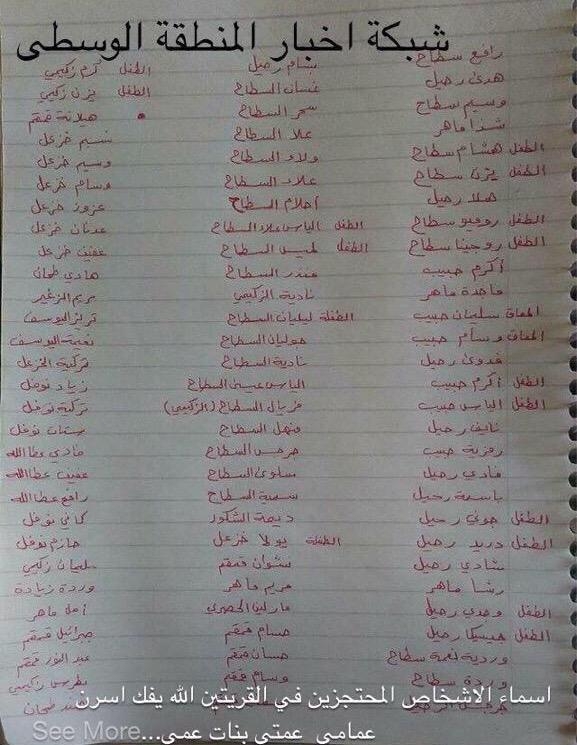 شبكة اخبار المنطقة الوسطى
رافع سطاح
هدى رحيل
وسيم سطاح
شذا ماهر
الطفل هشام سطاح
الطفل يزن سطاح
هلا رحيل
الطفل روميو سطاح
الطفل روجينا سطاح
أكرم حبيب
ماجدة ماهر
المعاق سليمان حبيب
المعاق وسام حبيب
فدوى رحيل
الطفل أكرم حبيب
الطفل الياس حبيب
نايف رحيل
رمزية حبيب
فادي رحيل
باسمة رحيل
الطفل جوني رحيل
الطفل دريد رحيل
شادي رحيل
رشا ماهر
الطفل وحدي رحيل
الطفل جيسيكا رحيل
وردية نعمة سطاح
وردة سطاح
بسام رحيل
غسان السطاح
سحر السطاح
علا السطاح
ولاء السطاح
علاء السطاح
أحلام السطاح
الطفل الياس علاء السطاح
الطفل لميس السطاح
منذر السطاح
نادية الزكيمي
الطفلة ليليان السطاح
جوليان السطاح
نادية السطاح
الياس عيسى السطاح
فريال السطاح (الزكيمي)
منهل السطاح
جرجس السطاح
سلوى السطاح
سمية السطاح
ديمة الشكور
الطفلة يولا خزعل
نشوان قمقم
مريم ماهر
مارلين الحصري
حسام قمقم
حسان قمقم
وسام قمقم
الطفل كرم زكيمي
الطفل يزن زكيمي
هيلانة قمقم
نسيم خزعل
وسيم خزعل
وسام خزعل
عزوز خزعل
عدنان خزعل
عفيف خزعل
هادي طحان
مريم الزغير
تريز اليوسف
نعيمة اليوسف
تركية الخزعل
زياد نوفل
تركية نوفل
فادي عطاالله
عفيف عطاالله
رافع عطاالله
كاني نوفل
حازم نوفل
سليمان زكيمي
وردة زيادة
أمل ماهر
جبرائيل قمقم
عبد النور قمقم
بطرس زكيمي
اسماء الاشخاص المحتجزين في القريتين الله يفك اسرن
عمامي عمتي بنات عمي...See More